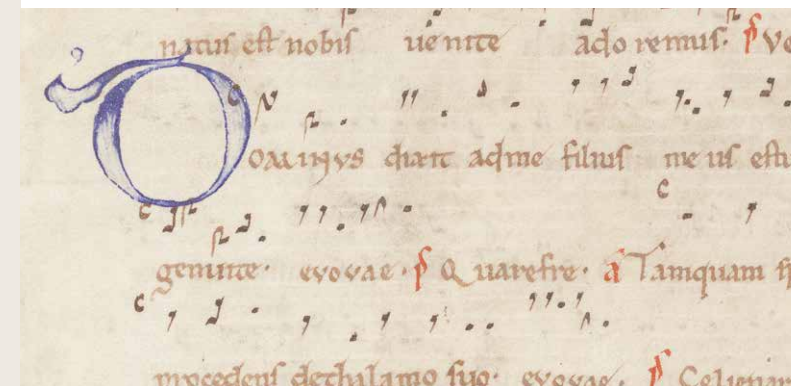 natus est nobis uenite adoremus. ps Ve
DOMINVS dixit ad me filius meus es tu
genui te. evovae. ps Quare fre. a Tamquam sp
procedens de thalamo suo. evovae ps Celi enar